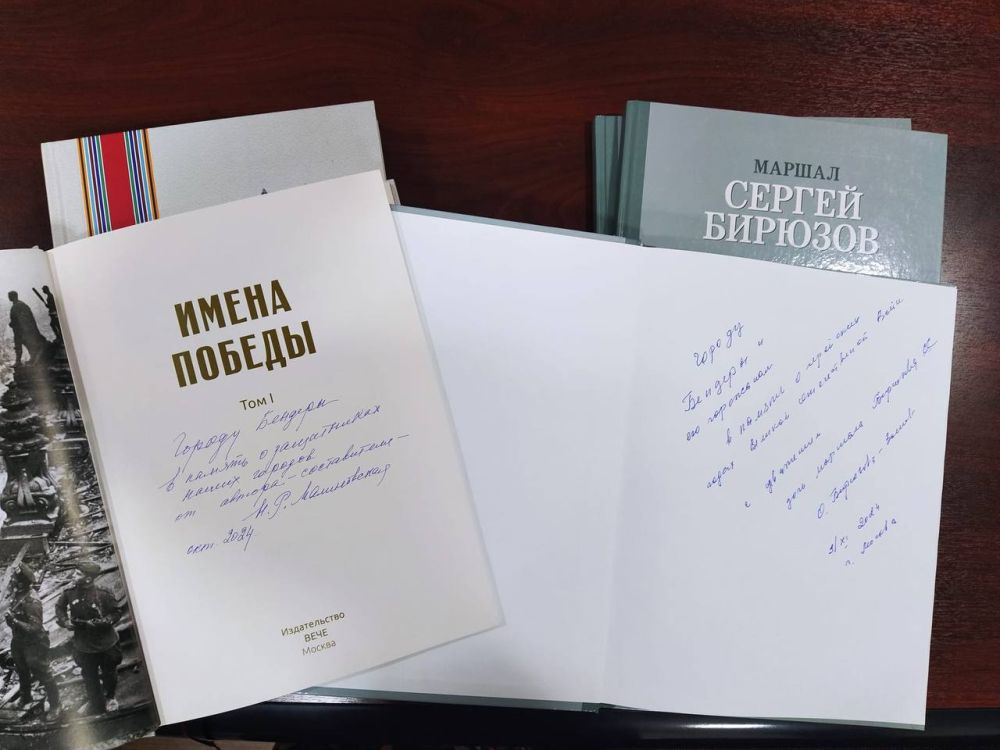 МАРШАЛ
СЕРГЕЙ
БИРЮЗОВ
ИМЕНА
ПОБЕДЫ
Том I
Городу Бендеры
в память о защитниках
наших городов
от автора-составителя –
М.Р. Малиновская
окт. 2024
Издательство
ВЕЧЕ
Москва
Городу
Бендеры и
его горожанам
в память о
годах Великой отечественной Войны
с уважением
дочь маршала Бирюзова
О. Бирюзова
3/XI. 2024
г. Москва